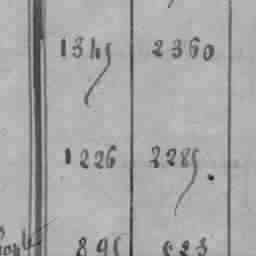 1345 2360
1226 2285.
895 623